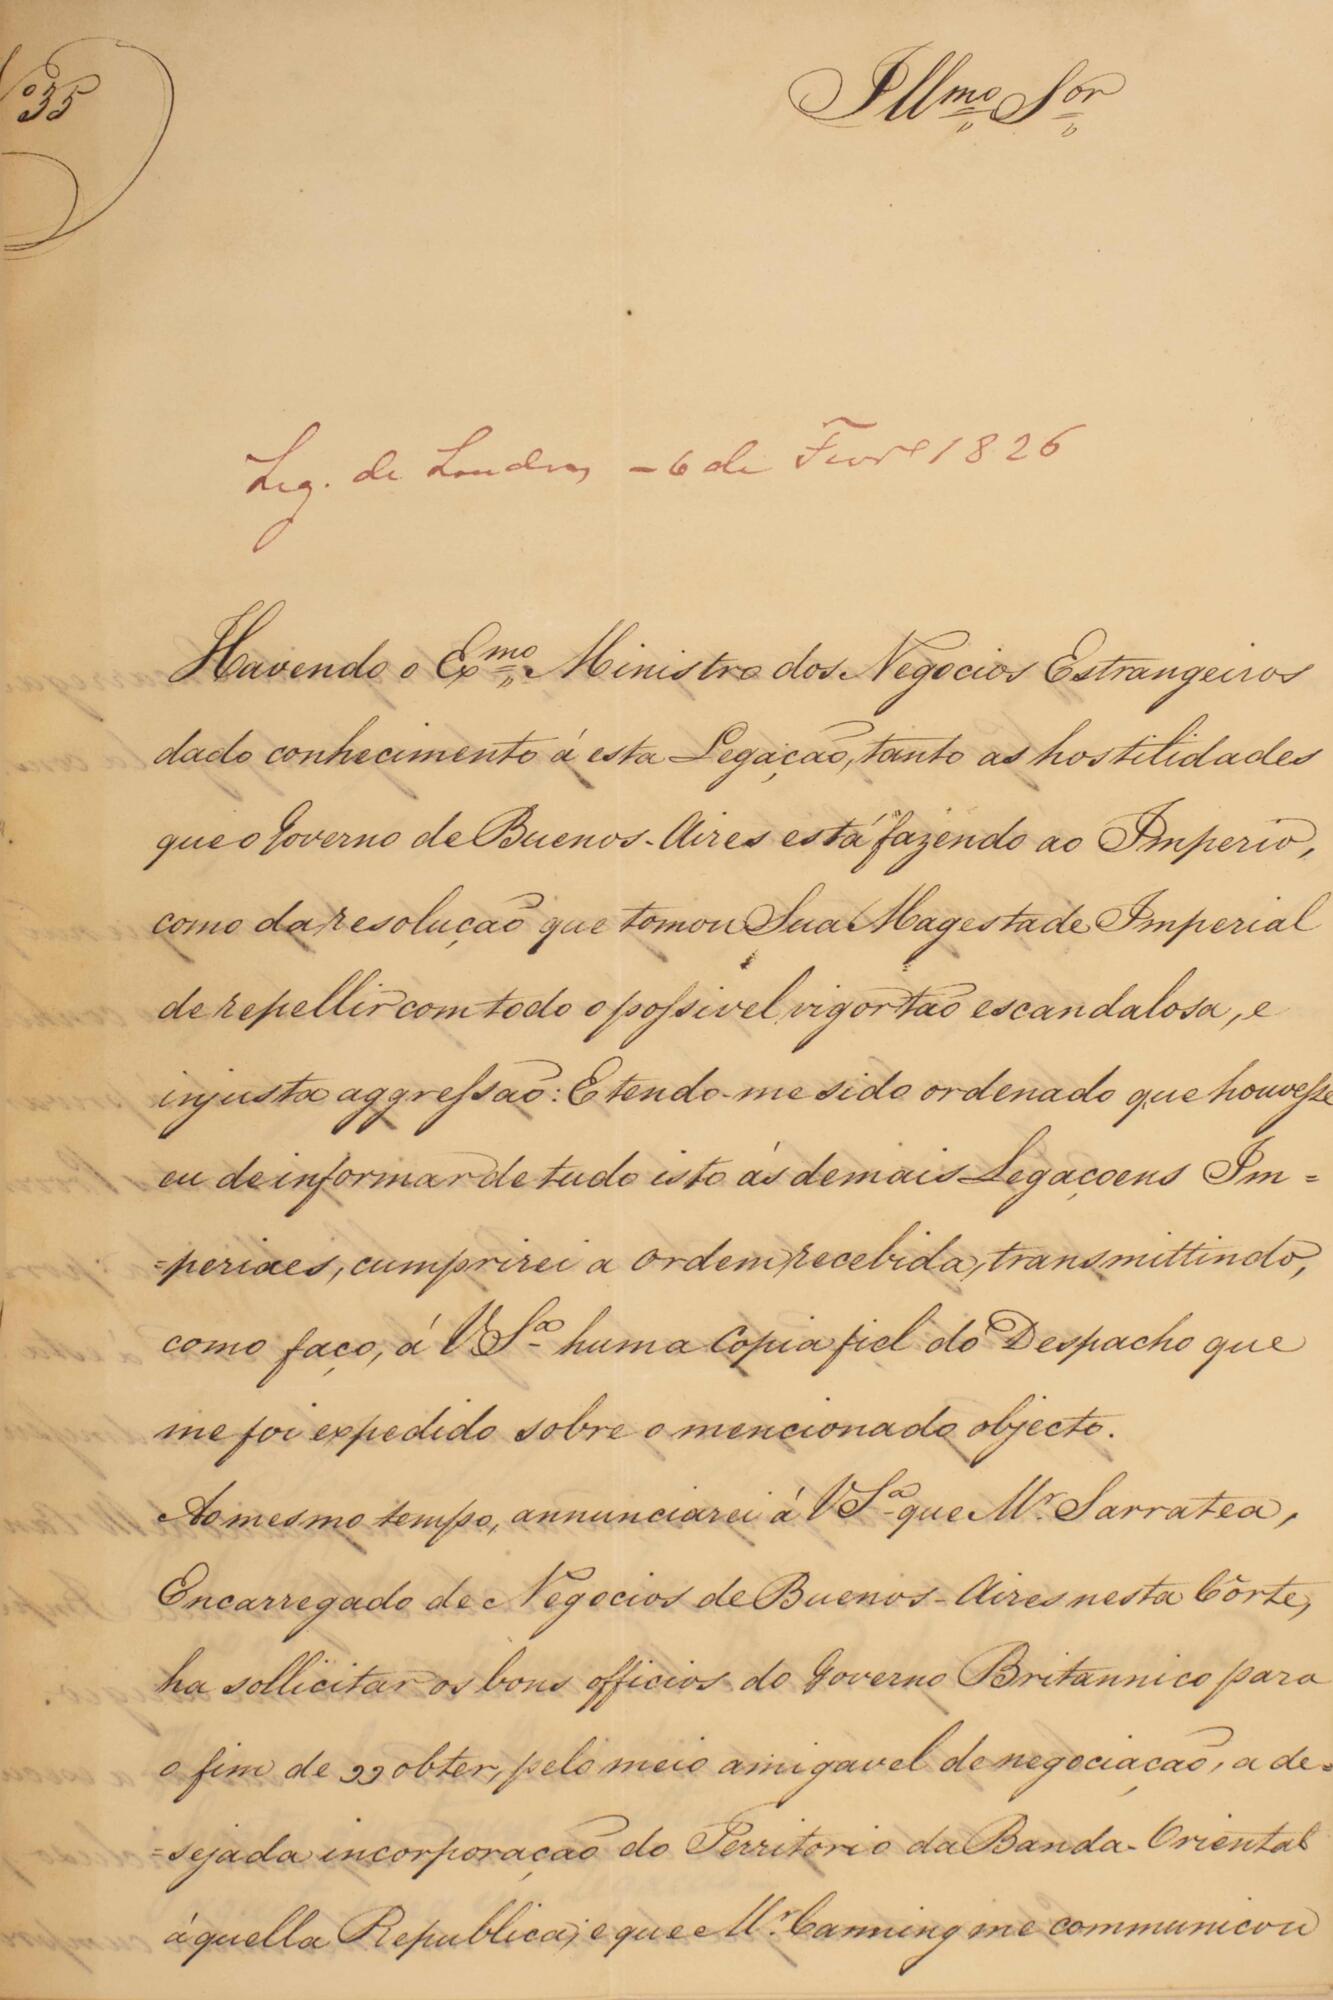 Nº 35
Illmo Sor
Leg. de Londres - 6 de Fevre 1826
Havendo o Exmo Ministro dos Negocios Estrangeiros
dado conhecimento á esta Legação, tanto as hostilidades
que o Governo de Buenos-Aires está fazendo ao Imperio,
como da resolução que tomou Sua Magestade Imperial
de repellir com todo o possivel vigor tão escandalosa, e
injusta aggressão: E tendo-me sido ordenado que houvesse
eu de informar de tudo isto ás demais Legaçoens Im=
=periaes, cumprirei a ordem recebida, transmittindo,
como faço, á V Sª huma Copia fiel do Despacho que
me foi expedido sobre o mencionado objecto.
Ao mesmo tempo, annunciarei á V Sª que Mr. Sarratea,
Encarregado de Negocios de Buenos-Aires nesta Côrte,
ha sollicitar os bons officios do Governo Britannico para
o fim de „obter, pelo meio amigavel de negociação, a de=
=sejada incorporação do Territorio da Banda-Oriental
áquella Republica; e que Mr. Canning me communicou